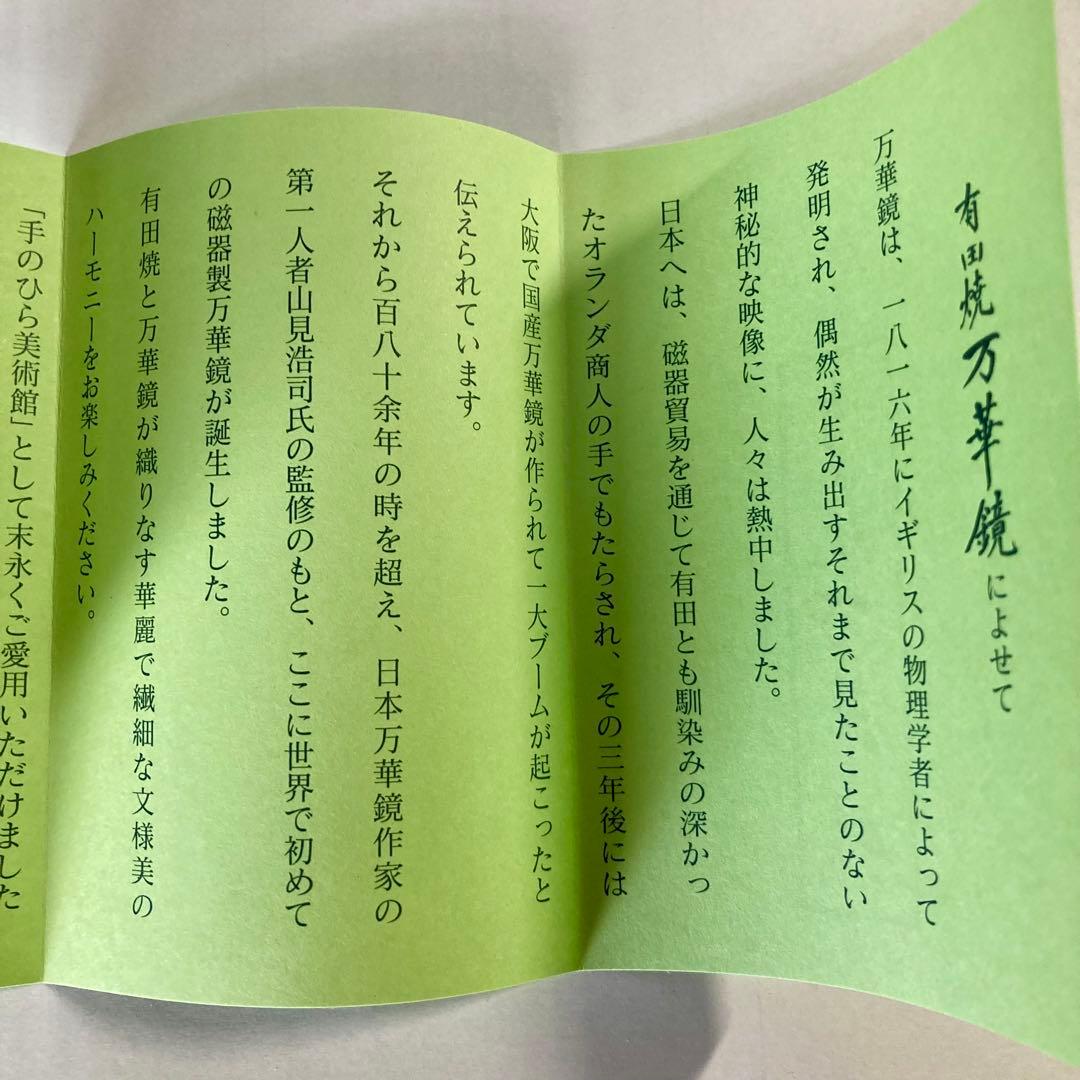 有田焼万華鏡によせて
万華鏡は、一八一六年にイギリスの物理学者によって
発明され、偶然が生み出すそれまで見たことのない
神秘的な映像に、人々は熱中しました。
日本へは、磁器貿易を通じて有田とも馴染みの深かっ
たオランダ商人の手でもたらされ、その三年後には
大阪で国産万華鏡が作られて一大ブームが起こったと
伝えられています。
それから百八十余年の時を超え、日本万華鏡作家の
第一人者山見浩司氏の監修のもと、ここに世界で初めて
の磁器製万華鏡が誕生しました。
有田焼と万華鏡が織りなす華麗で繊細な文様美の
ハーモニーをお楽しみください。
「手のひら美術館」として末永くご愛用いただけました